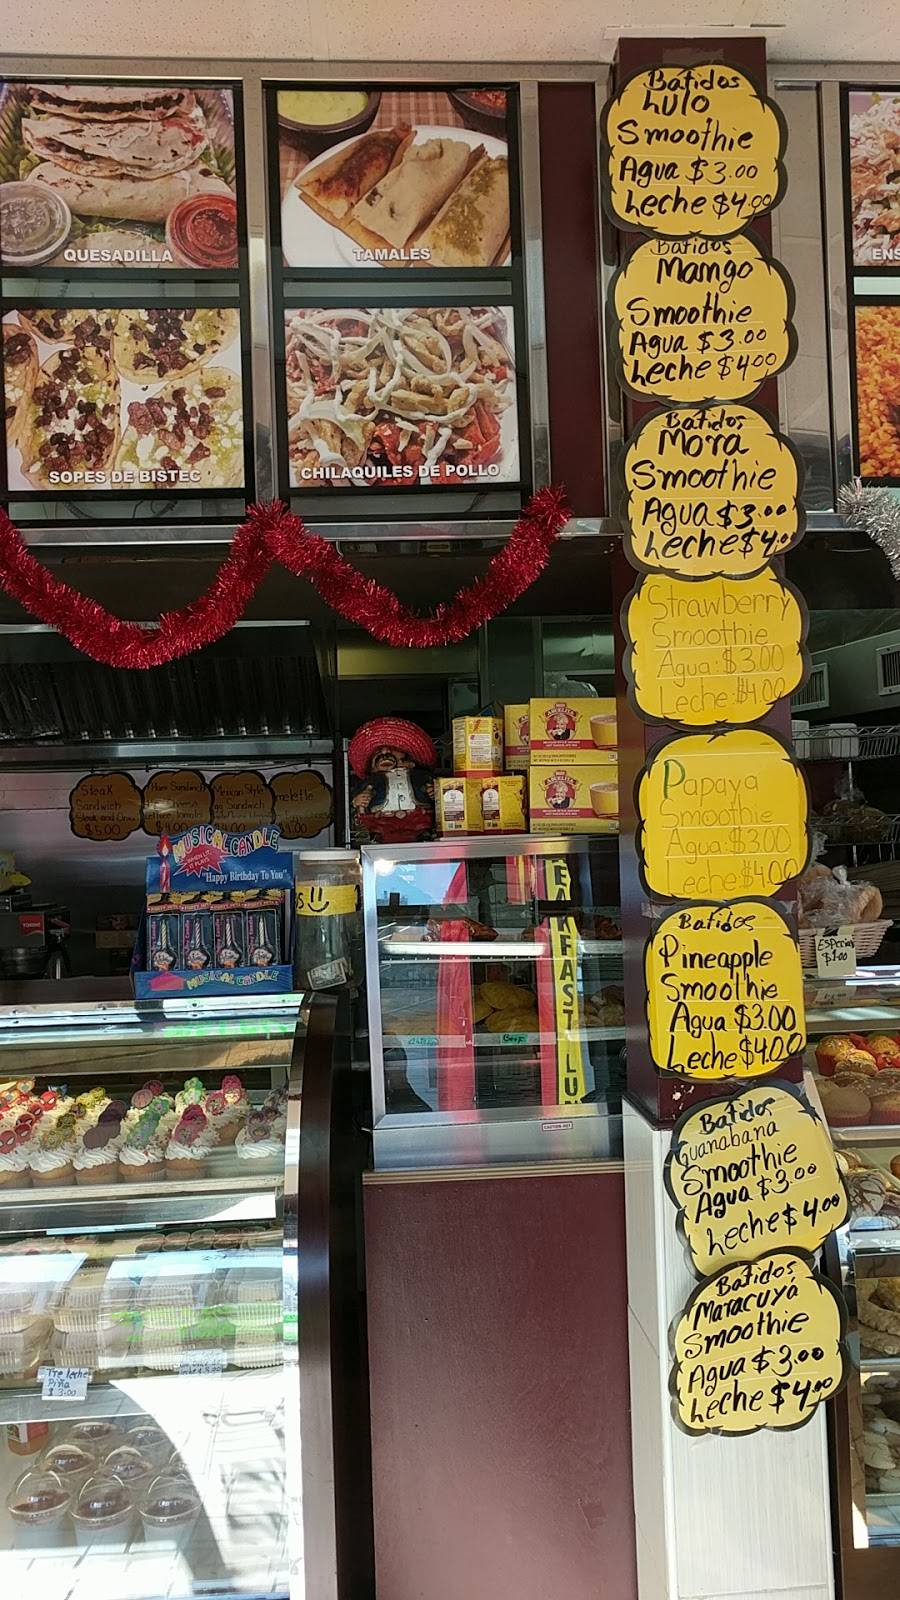 QUESADILLA
TAMALES
SOPES DE BISTEC
CHILAQUILES DE POLLO
ENS
Batidos
Lulo
Smoothie
Agua $3.00
Leche $4.00
Batidos
Mango
Smoothie
Agua $3.00
Leche $4.00
Batidos
Mora
Smoothie
Agua $3.00
Leche $4.00
Strawberry
Smoothie
Agua: $3.00
Leche: $4.00
Papaya
Smoothie
Agua: $3.00
Leche: $4.00
Batidos
Pineapple
Smoothie
Agua $3.00
Leche $4.00
Batidos
Guanabana
Smoothie
Agua $3.00
Leche $4.00
Batidos
Maracuyá
Smoothie
Agua $3.00
Leche $4.00
Steak
Sandwich
$5.00
Sandwich
Mexican Style
Sandwich
MUSICAL CANDLE
WHEN LIT
IT PLAYS
"Happy Birthday To You"
MUSICAL CANDLE
ABUELITA
EAKFAST LU
Beef
CAUTION HOT
Especial
$1.00
Tre leche
Piña
$3.00